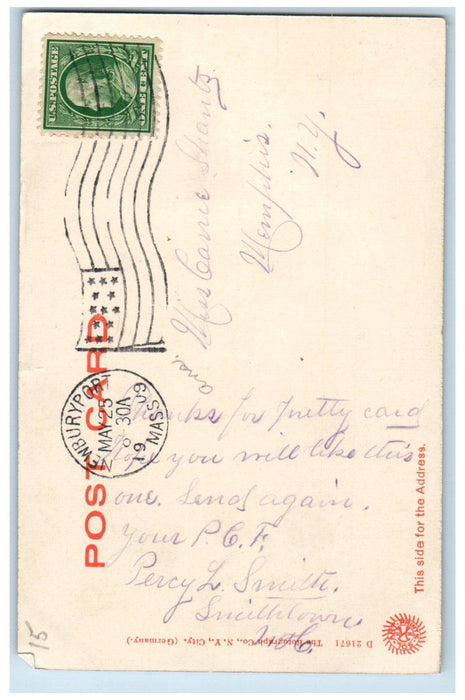 U.S. POSTAGE
NEWBURYPORT
MAY 25
8 30A
19 09
MASS
POST CARD
Miss Carrie Shantz
Memphis.
N.Y.
ans.
Thanks for Pretty card
hope you will like this
one. Send again.
Your P.C.F.
Percy L. Smith.
Smithtown.
N.H.
This side for the Address.
D 21671 The Rotograph Co., N. Y., City. (Germany).
15